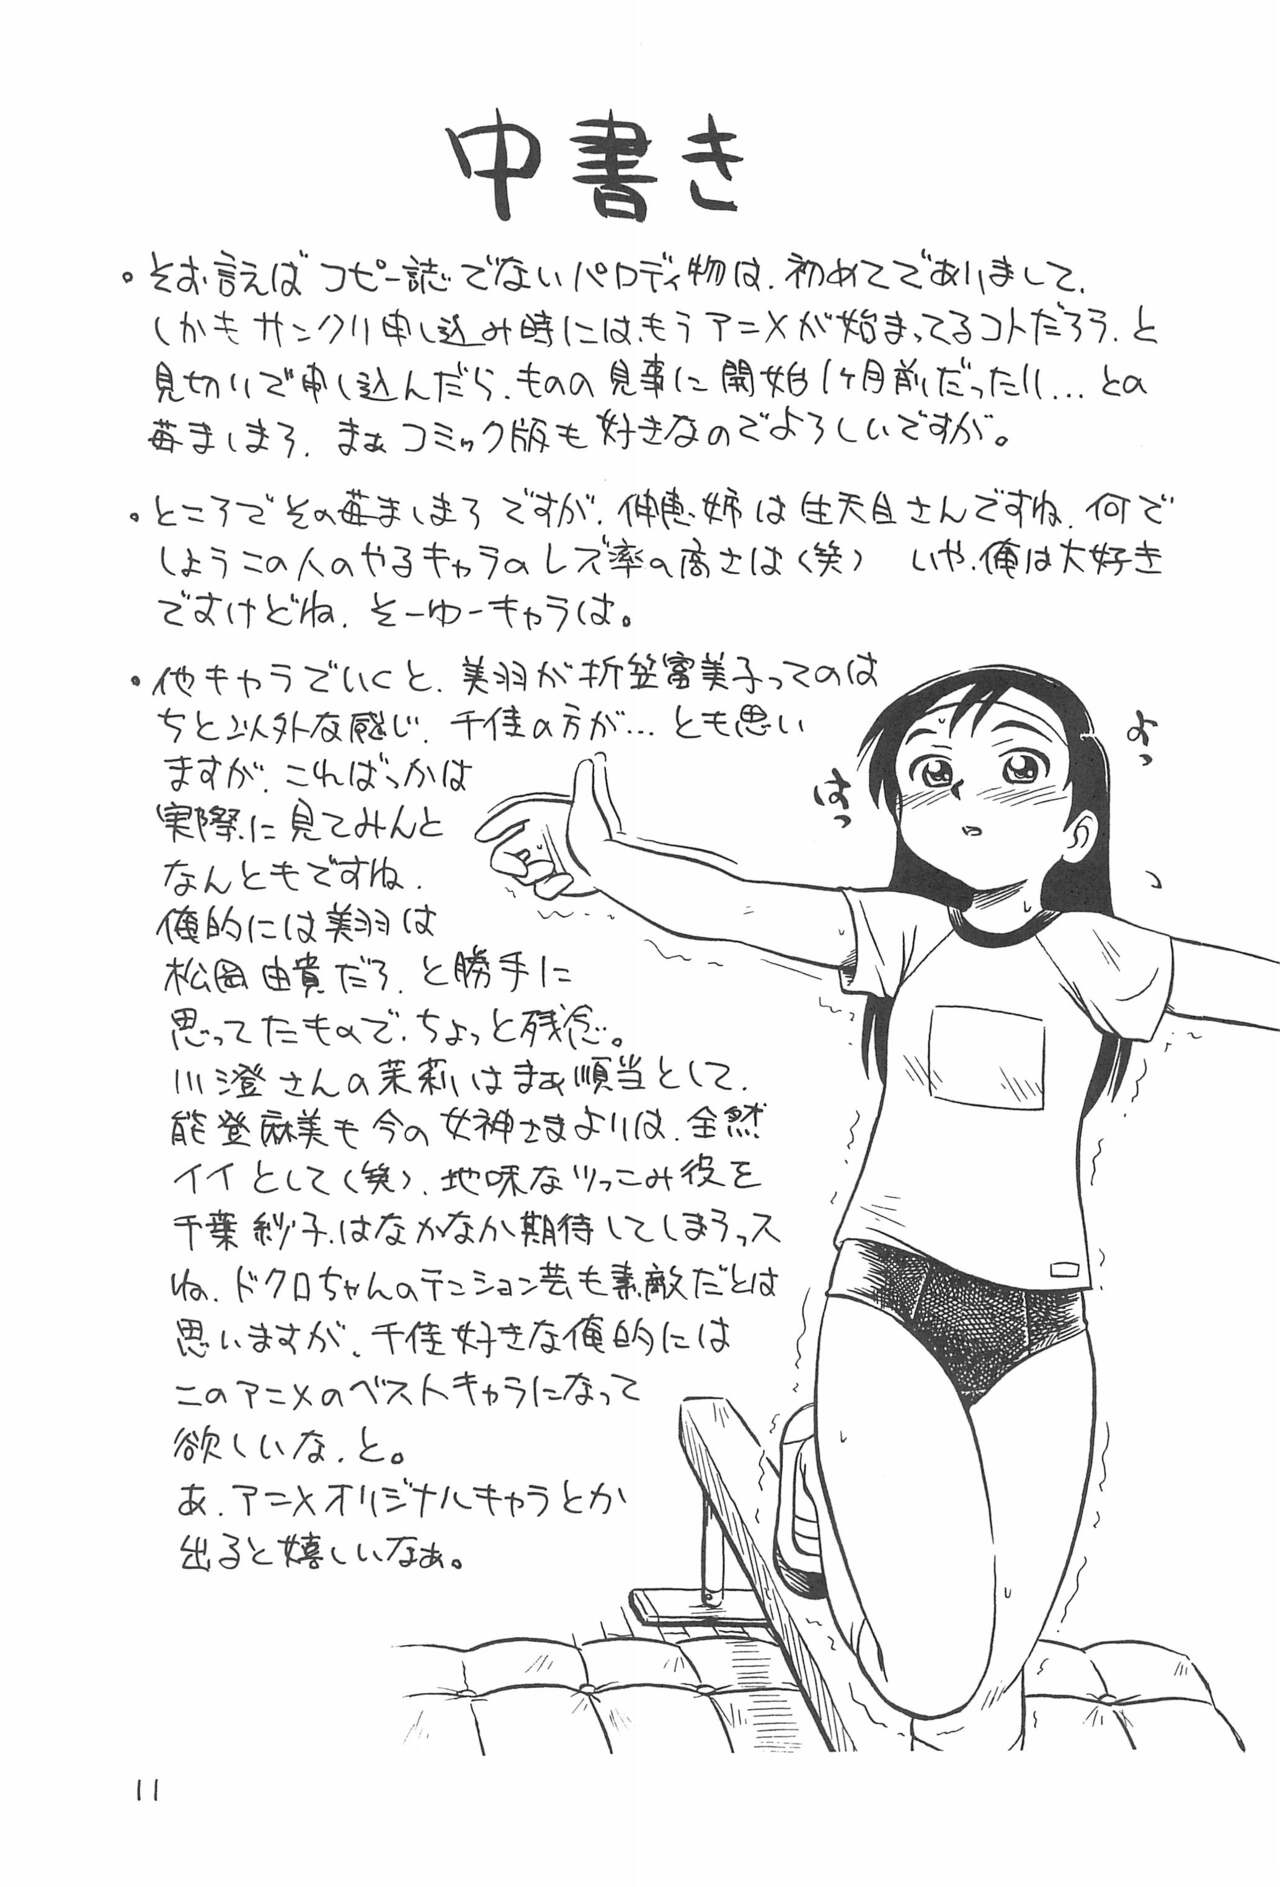 中書き
・そお言えば コピー誌でないパロディ物は、初めてでありまして、
しかもサンクリ申し込み時には、もうアニメが始まってるコトだろう、と
見切りで申し込んだら、ものの見事に開始1ヶ月前だったり…との
苺ましまろ、まぁコミック版も好きなのでよろしいですが。
・ところでその苺ましまろですが、伸恵姉は生天目さんですね、何で
しようこの人のやるキャラのレズ率の高さは(笑) いや、俺は大好き
ですけどね、そーゆーキャラは。
・他キャラでいくと、美羽が折笠富美子ってのは
ちと以外な感じ、千佳の方が…とも思い
ますが、こればっかは
実際に見てみんと
なんともですね、
俺的には美羽は
松岡由貴だろ、と勝手に
思ってたもので、ちょっと残念。
川澄さんの茉莉はまぁ順当として、
能登麻美も今の女神さまよりは、全然
イイとして(笑)、地味なツっこみ役を
千葉紗子、はなかなか期待してしまうっス
ね、ドクロちゃんのテンション芸も素敵だとは
思いますが、千佳好きな俺的には
このアニメのベストキャラになって
欲しいな、と。
あ、アニメオリジナルキャラとか
出ると嬉しいなぁ。
よっ
はっ
11